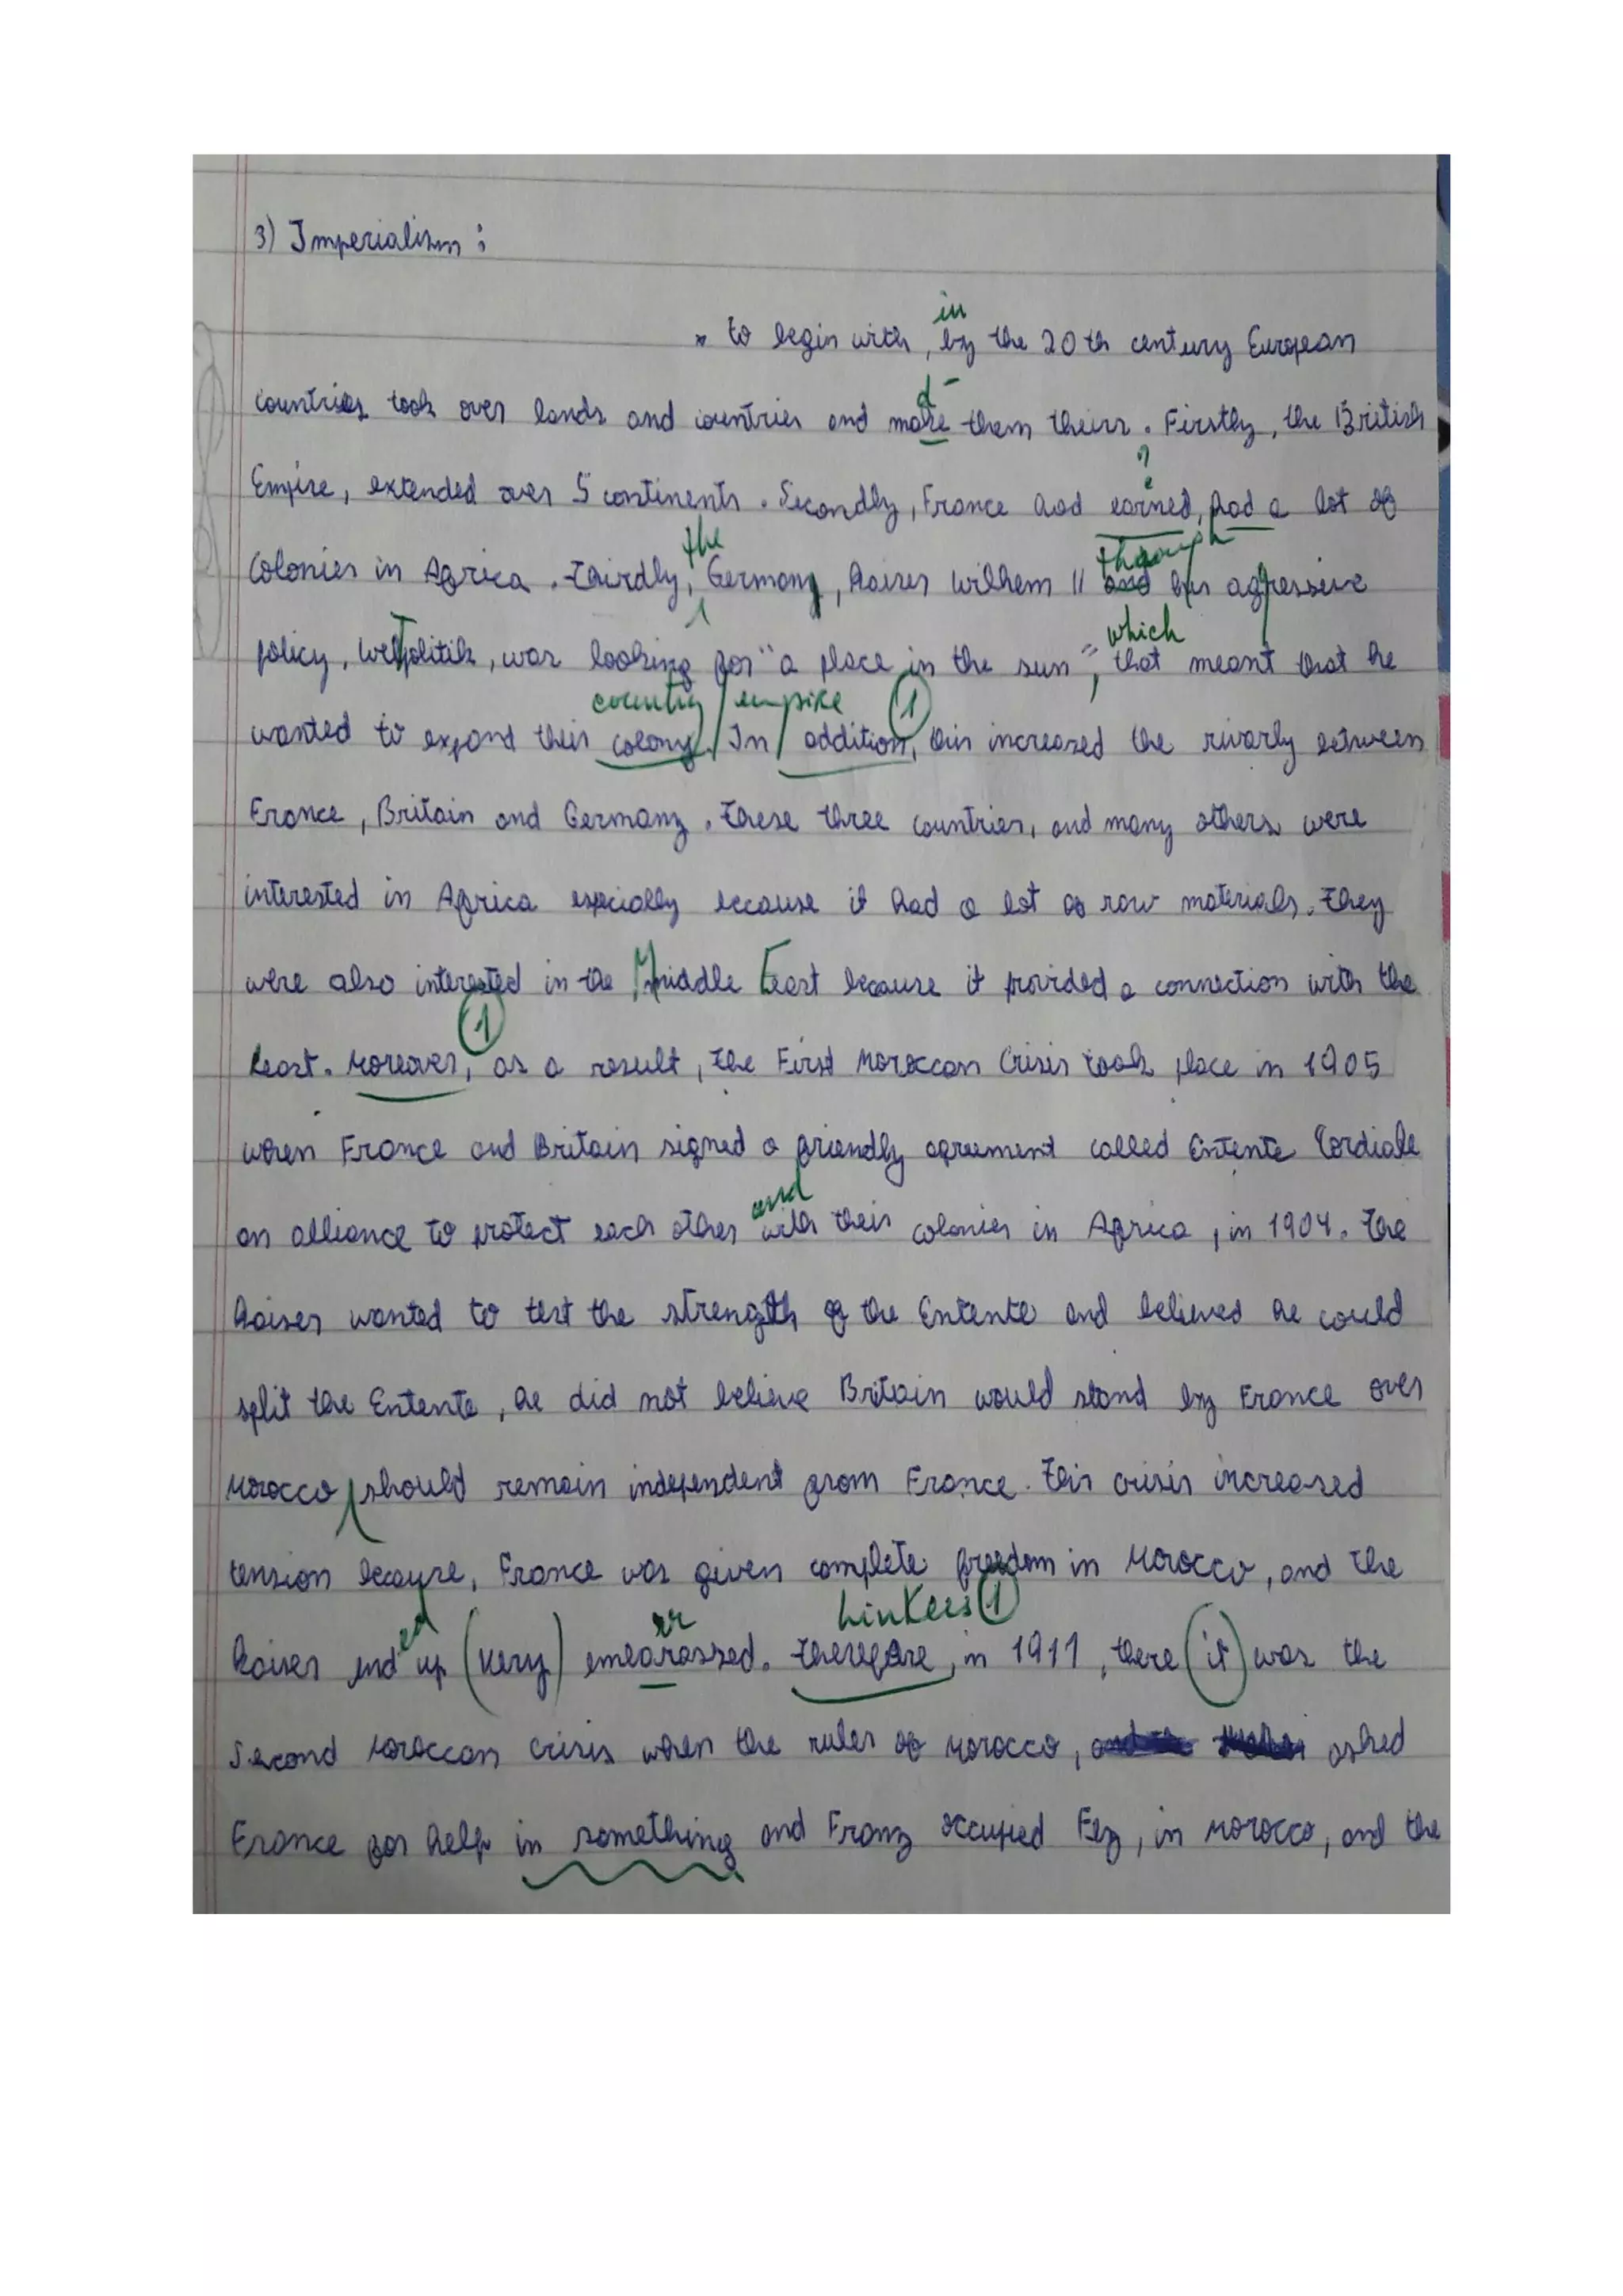 3) Imperialism:
in
* to begin with, by the 20th century European
d
countries took over lands and countries and make them theirs. Firstly, the British
?
Empire, extended over 5 continents. Secondly, France had earned, had a lot of
the
through
Colonies in Africa. Thirdly, Germany, Kaiser Wilhem II and his agressive
T
which
policy, Weltpolitik, was looking for "a place in the sun", that meant that he
country / empire 1
wanted to expand their colony. In addition, this increased the rivarly between
France, Britain and Germany. These three countries, and many others were
interested in Africa especially because it had a lot of raw materials. They
were also interested in the Middle East because it provided a connection with the
1
East. Moreover, as a result, the First Moroccan Crisis took place in 1905
when France and Britain signed a friendly agreement called Entente Cordiale
and
an alliance to protect each other with their colonies in Africa, in 1904. The
Kaiser wanted to test the strength of the Entente and believed he could
split the Entente, he did not believe Britain would stand by France over
Morocco should remain independent from France. This crisis increased
tension because, France was given complete freedom in Morocco, and the
ed
rr
Linkers 1
Kaiser end up (very) embarassed. Therefore, in 1911, there it was the
Second Moroccan crisis when the ruler of Morocco, asked
France for help in something and Franz occupied Fez, in Morocco, and the